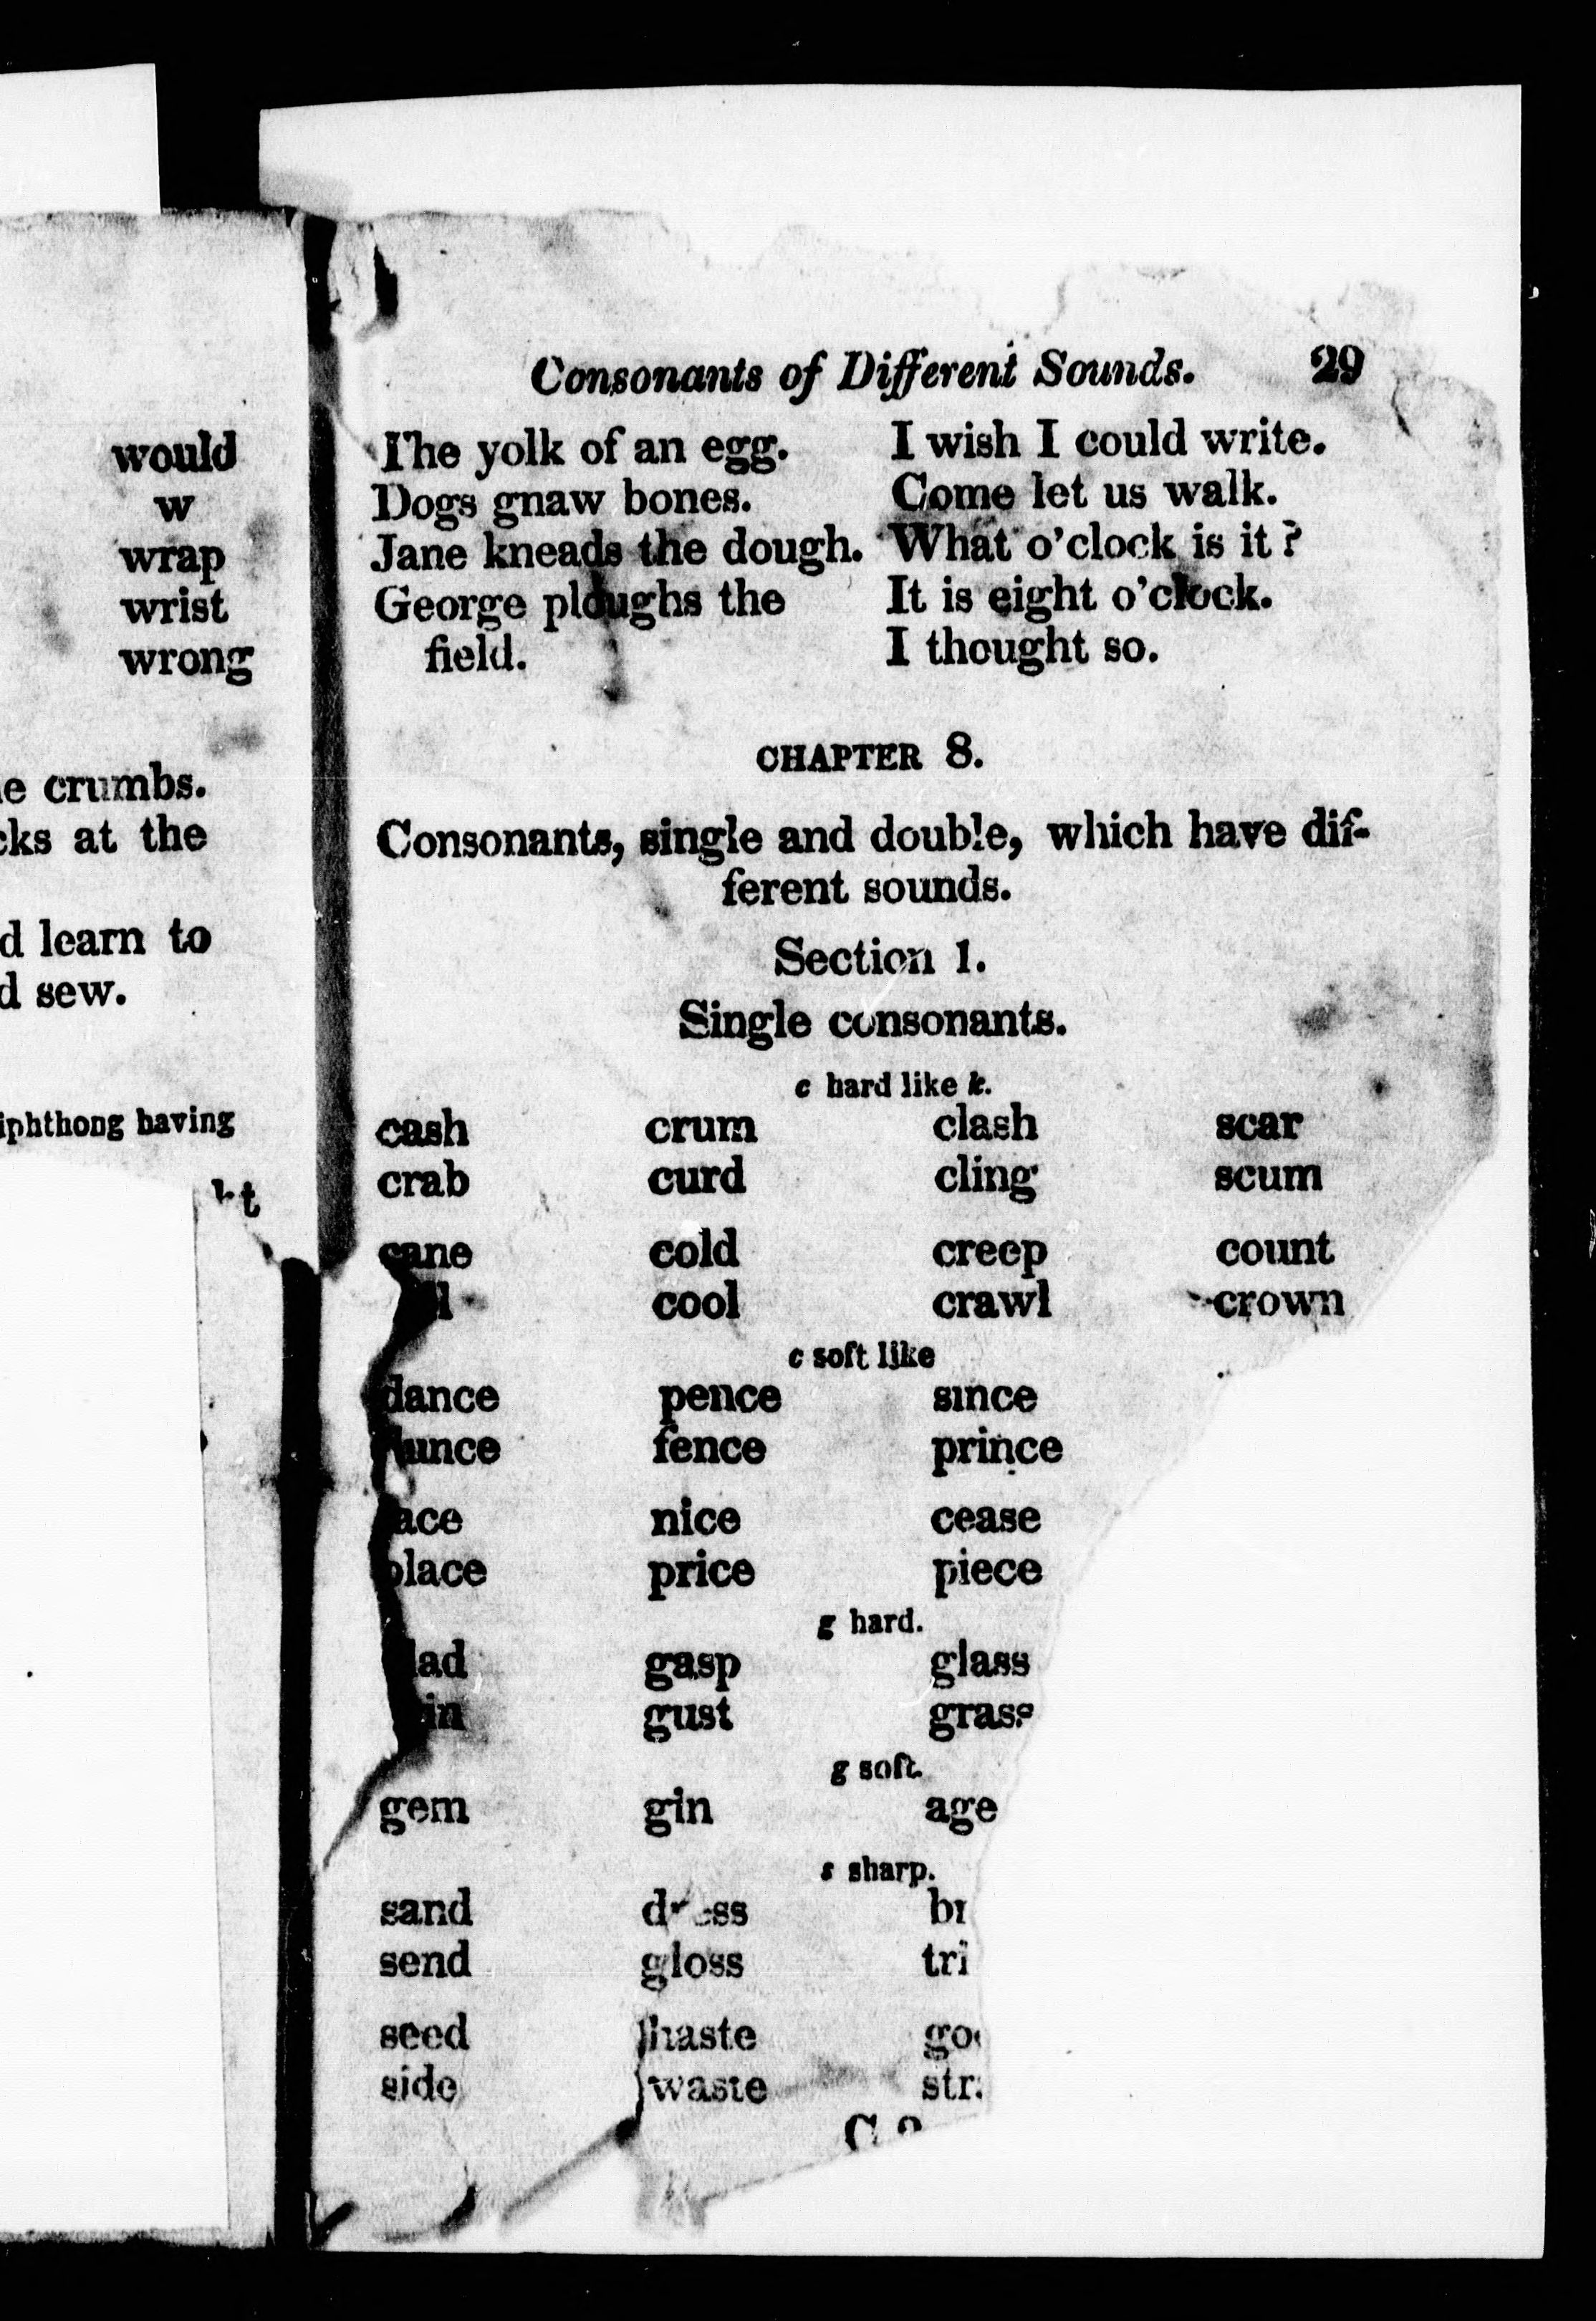 would
w
wrap
wrist
wrong
crumbs.
at the
learn to
sew.
having
Consonants of Different Sounds. 29
The yolk of an egg.
Dogs gnaw bones.
Jane kneads the dough.
George ploughs the
field.
I wish I could write.
Come let us walk.
What o'clock is it?
It is eight o'clock.
I thought so.
CHAPTER 8.
Consonants, single and double, which have dif-
ferent sounds.
Section 1.
Single consonants.
c hard like k.
cash crum clash scar
crab curd cling scum
cane cold creep count
cool crawl crown
c soft like
dance pence since
fence prince
nice cease
place price piece
g hard.
gasp glass
gust grass
g soft.
gem gin age
s sharp.
sand dress
send gloss
seed haste
side waste